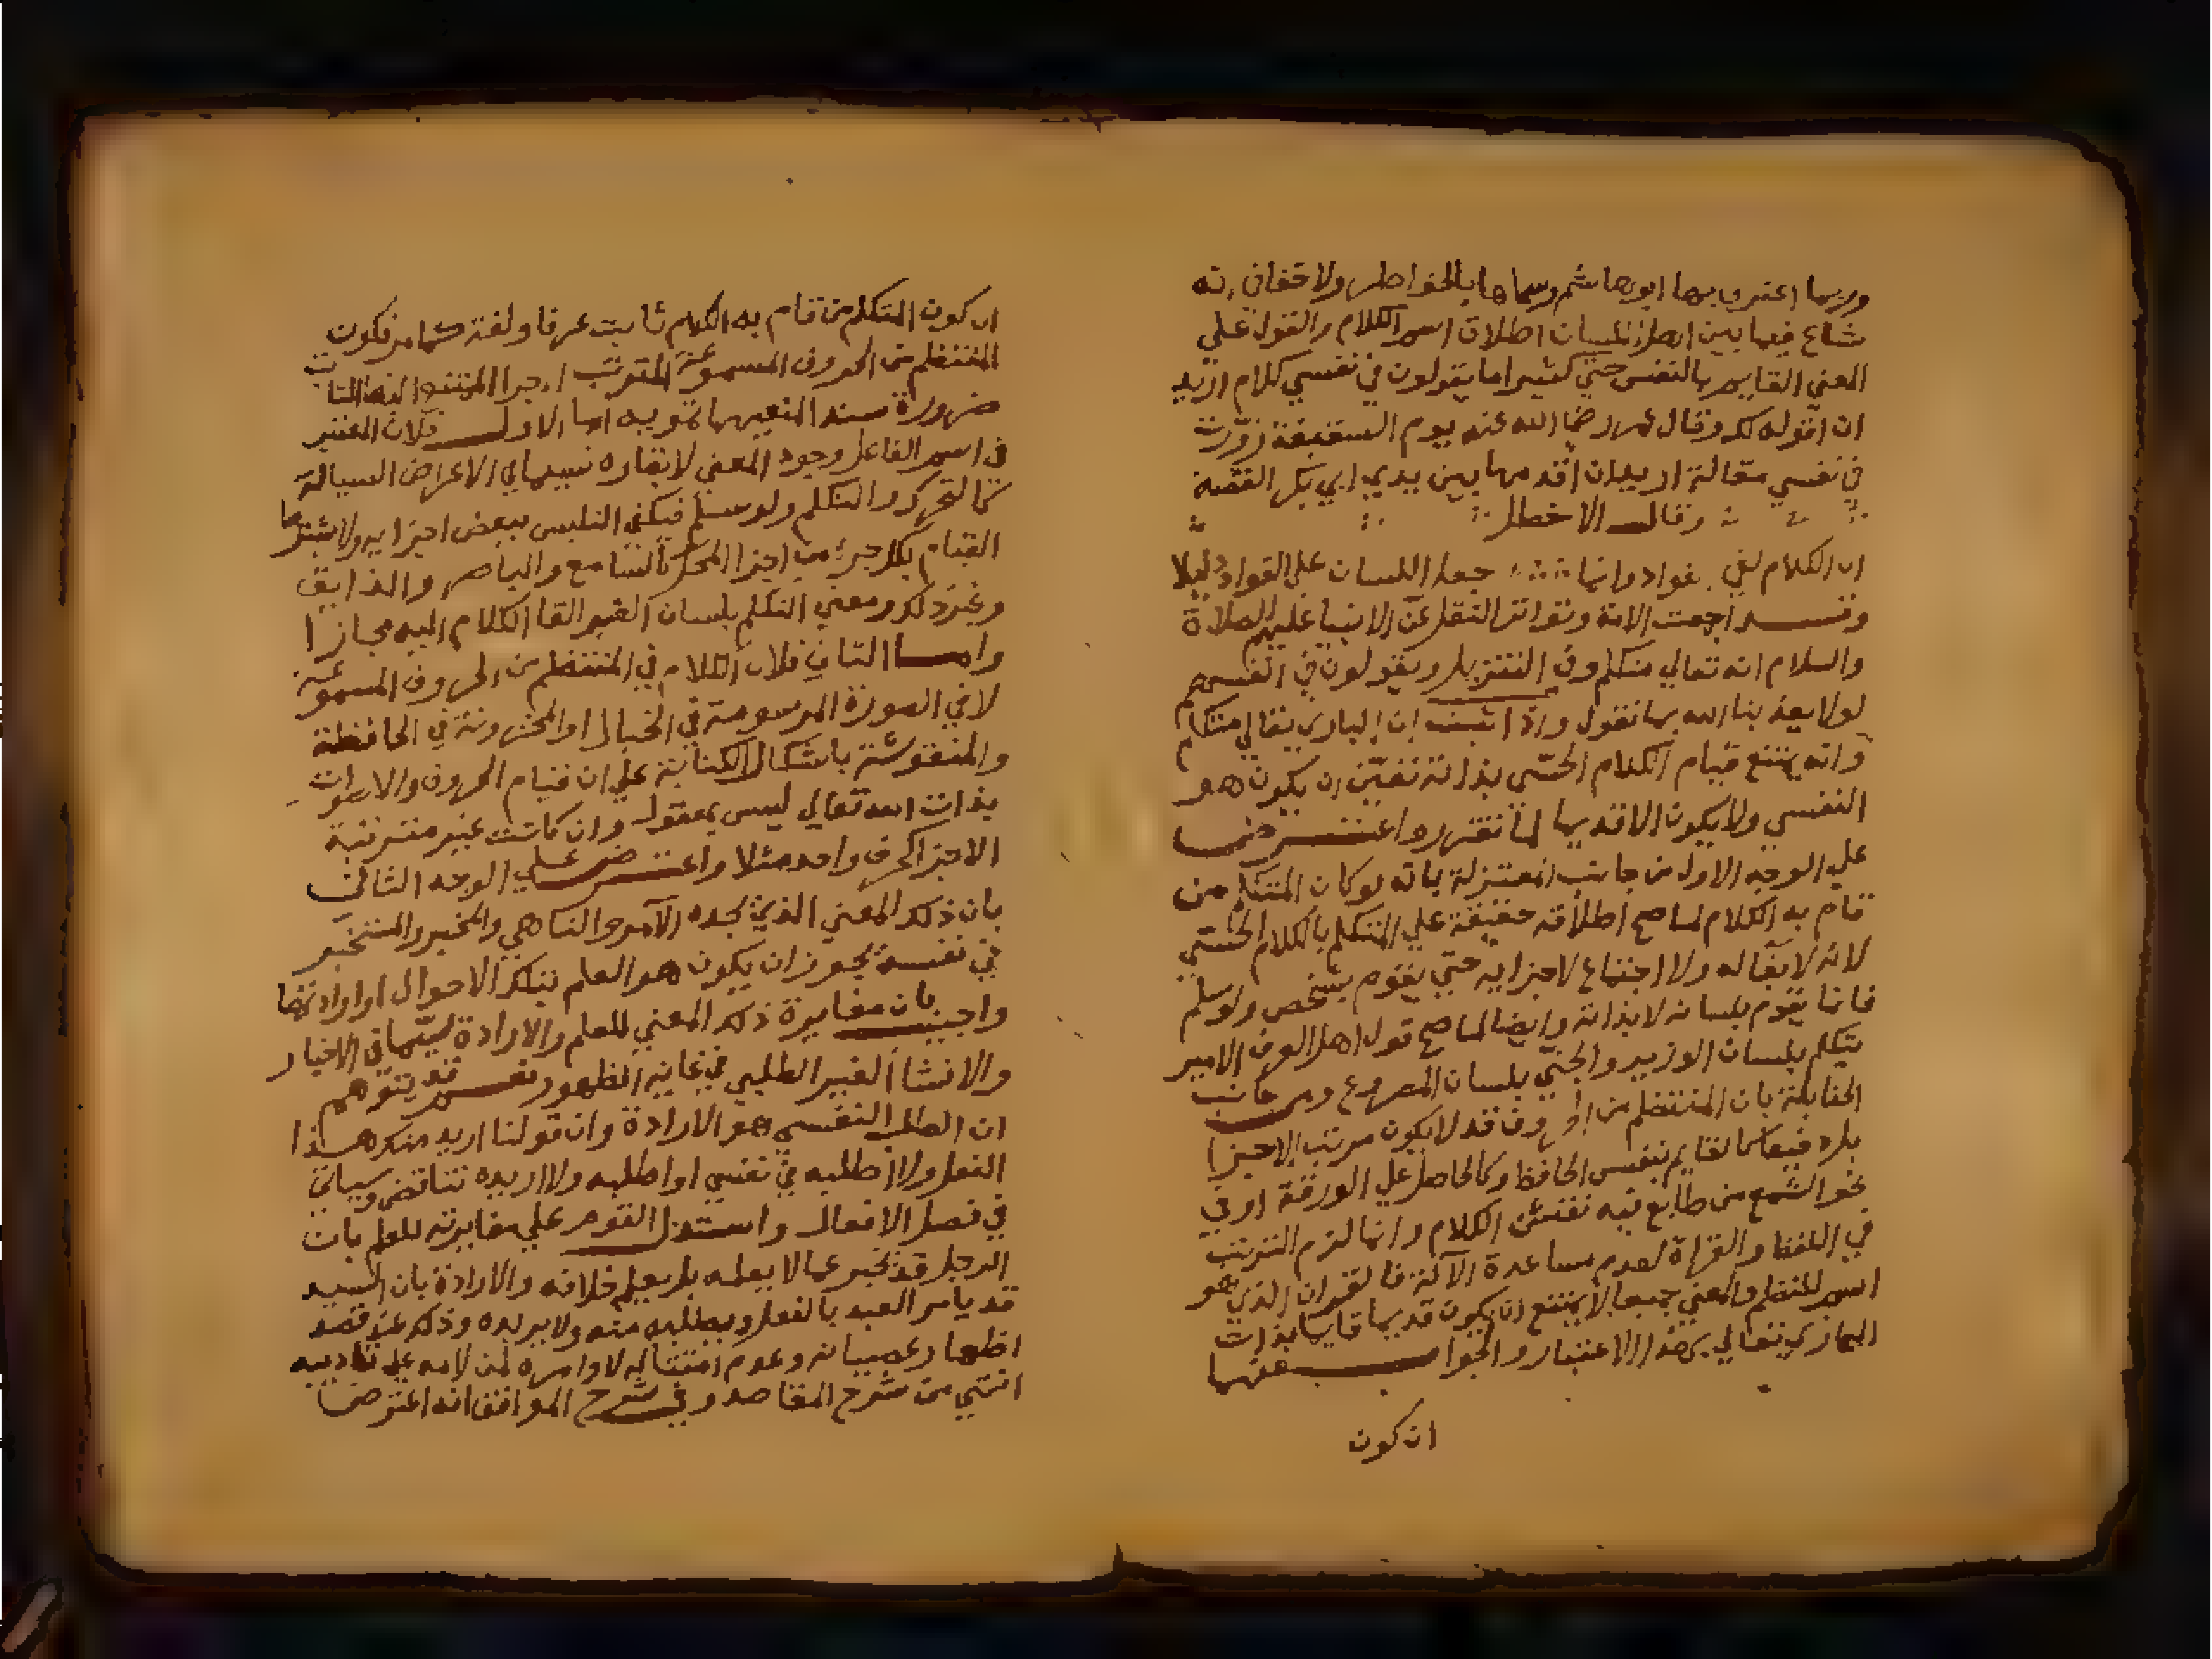 وربما اعترف بها ابوهاشم وسماها بالخواطر ولا خفا في انه
شاع فيما بين اهل اللسان اطلاق اسم الكلام والقول علي
المعني القايم بالنفس حتي كثيرا ما يقولون في نفسي كلام اريد
ان اقوله لك وقال عمر رضي الله عنه يوم السقيفة زورت
في نفسي مقالة اريد ان اقدمها بين يدي ابي بكر القصة
وقال الاخطل
ان الكلام لفي الفواد وانما جعل اللسان علي الفواد دليلا
وقد اجمعت الامة وتواتر النقل عن الانبيا عليهم الصلاة
والسلام انه تعالي متكلم وفي التنزيل ويقولون في انفسهم
لولا يعذبنا الله بما نقول واذا اثبت ان الباري تعالي متكلم
وانه يمتنع قيام الكلام الحسي بذاته تعين ان يكون هو
النفسي ولا يكون الا قديما لما تقرر واعترض
علي الوجه الاول من جانب المعتزلة بانه لو كان المتكلم من
قام به الكلام لما صح اطلاقه حقيقة علي المتكلم بالكلام الحسي
لانه لا بقا له ولا اجتماع لاجزايه حتي يقوم بشخص ولو سلم
فانما يقوم بلسانه لا بذاته وايضا لما صح قول اهل العرف الامير
يتكلم بلسان الوزير والجني بلسان المصروع ومن جانب
الحنابلة بان المنتظم من الحروف قد لا يكون مرتب الاجزا
بل دفعيا كالقايم بنفس الحافظ وكالحاصل علي الورقة او في
نحو الشمع من طابع فيه نقش الكلام وانما لزم الترتب
في اللفظ والقراة لعدم مساعدة الآلة فالقران الذي هو
اسم للنظم والمعني جميعا لا يمتنع ان يكون قديما قايما بذات
الباري تعالي بهذا الاعتبار والجواب عنها
ان كون
ان كون المتكلم من قام به الكلام ثابت عرفا ولغة كما مر فكون
المنتظم من الحروف المسموعة المترتب اجزا الممتنع
ضرورة سند المنعيهما تمويه اما الاول فلان المعتبر
في اسم الفاعل وجود المعني لا بقاره سيما في الاعراض السيالة
كالمتحرك والمتكلم ولو سلم فيكفي التلبس ببعض اجزايه ولا يشترط
القيام بكل جزء من اجزا المحل كالسامع والباصر والذايق
وغير ذلك ومعني التكلم بلسان الغير القا الكلام اليه مجازا
واما الثاني فلان الكلام في المنتظم من الحروف المسموعة
لا في الصورة المرسومة في الخيال او المخزونة في الحافظة
والمنقوشة باشكال الكتابة علي ان قيام الحروف والاصوات
بذات الله تعالي ليس بمعقول وان كانت غير مترتبة
الاجزا كحرف واحد مثلا واعترض علي الوجه الثاني
بان ذلك المعني الذي يجده الآمر والناهي والمخبر والمستخبر
في نفسه يجوز ان يكون هو العلم بتلك الاحوال او ارادتها
واجيب بان مغايرة ذلك المعني للعلم والارادة سيما في الاخبار
والانشا الغير الطلبي في غاية الظهور نعم قد يتوهم
ان الطلب النفسي هو الارادة وان قولنا اريد منك هذا
الفعل ولا اطلبه في نفسي او اطلبه ولا اريده تناقض وسياتي
في فصل الافعال واستدل القوم علي مغايرته للعلم بان
الرجل قد يخبر عما لا يعلمه بل يعلم خلافه والارادة بان السيد
قد يامر العبد بالفعل ويطلبه منه ولا يريده وذلك عند قصد
اظهار عصيانه وعدم امتثاله لاوامره لمن لامه علي تاديبه
انتهي من شرح المقاصد وفي شرح المواقف انه اعترض